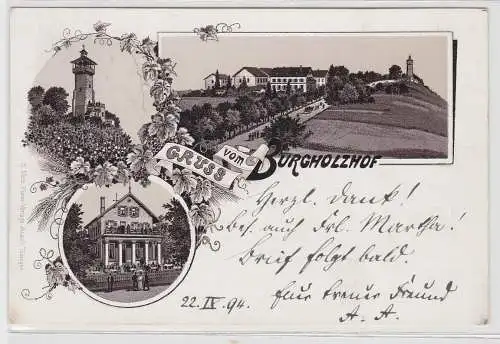 GRUSS vom BURGHOLZHOF
Herzl. Dank!
bes. auch Frl. Martha!
Brief folgt bald.
22. IV. 94.
Euer treuer Freund
A. A.